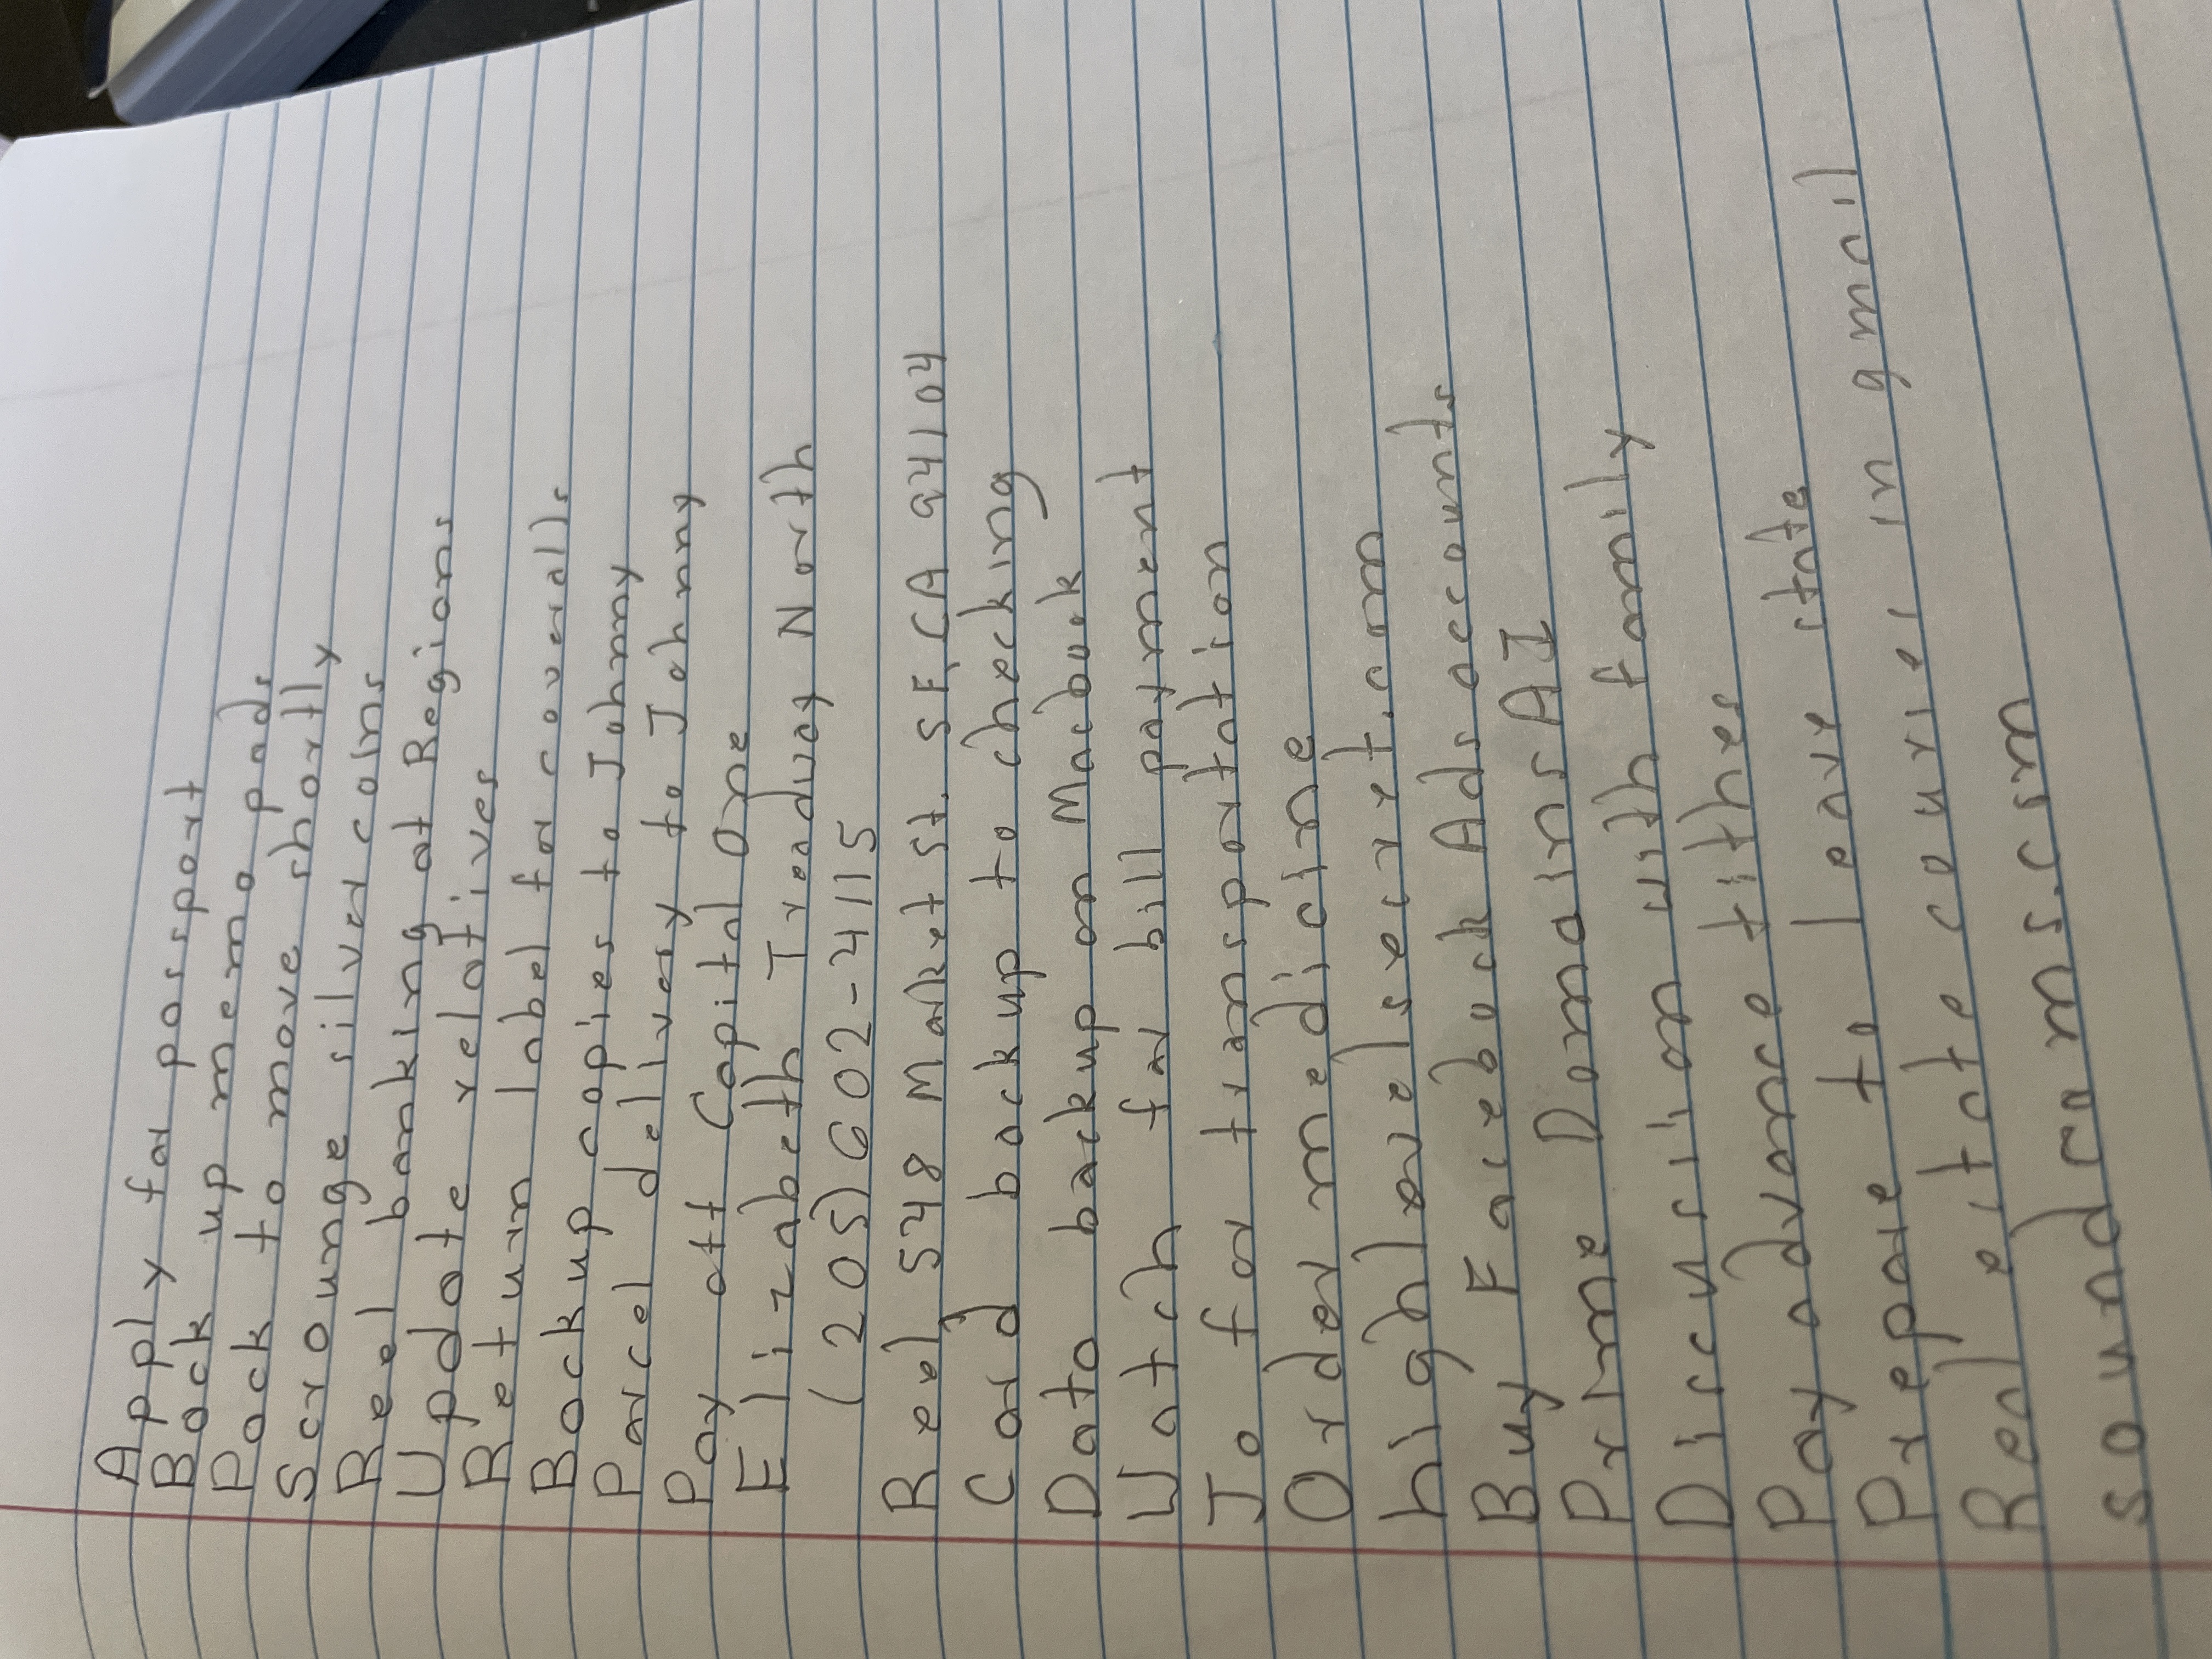 Apply for passport
Back up memo pads
Pack to move shortly
Scrounge silver coins
Real banking at Regions
Update relatives
Return label for coveralls
Backup copies to Johnny
Parcel delivery to Johnny
Pay off Capital One
Elizabeth Treadway North
(205) 602-4115
Real 548 Market St. SF, CA 94104
Card backup to checking
Data backup on Macbook
Watch for bill payment
Jo for transportation
Order medicine
highlevelsecret.com
Buy Facebook Ads accounts
Prime Domains AI
Discussion with family
Pay advance tithes
Prepare to leave state
Real estate courier in gmail
soundcomscsm